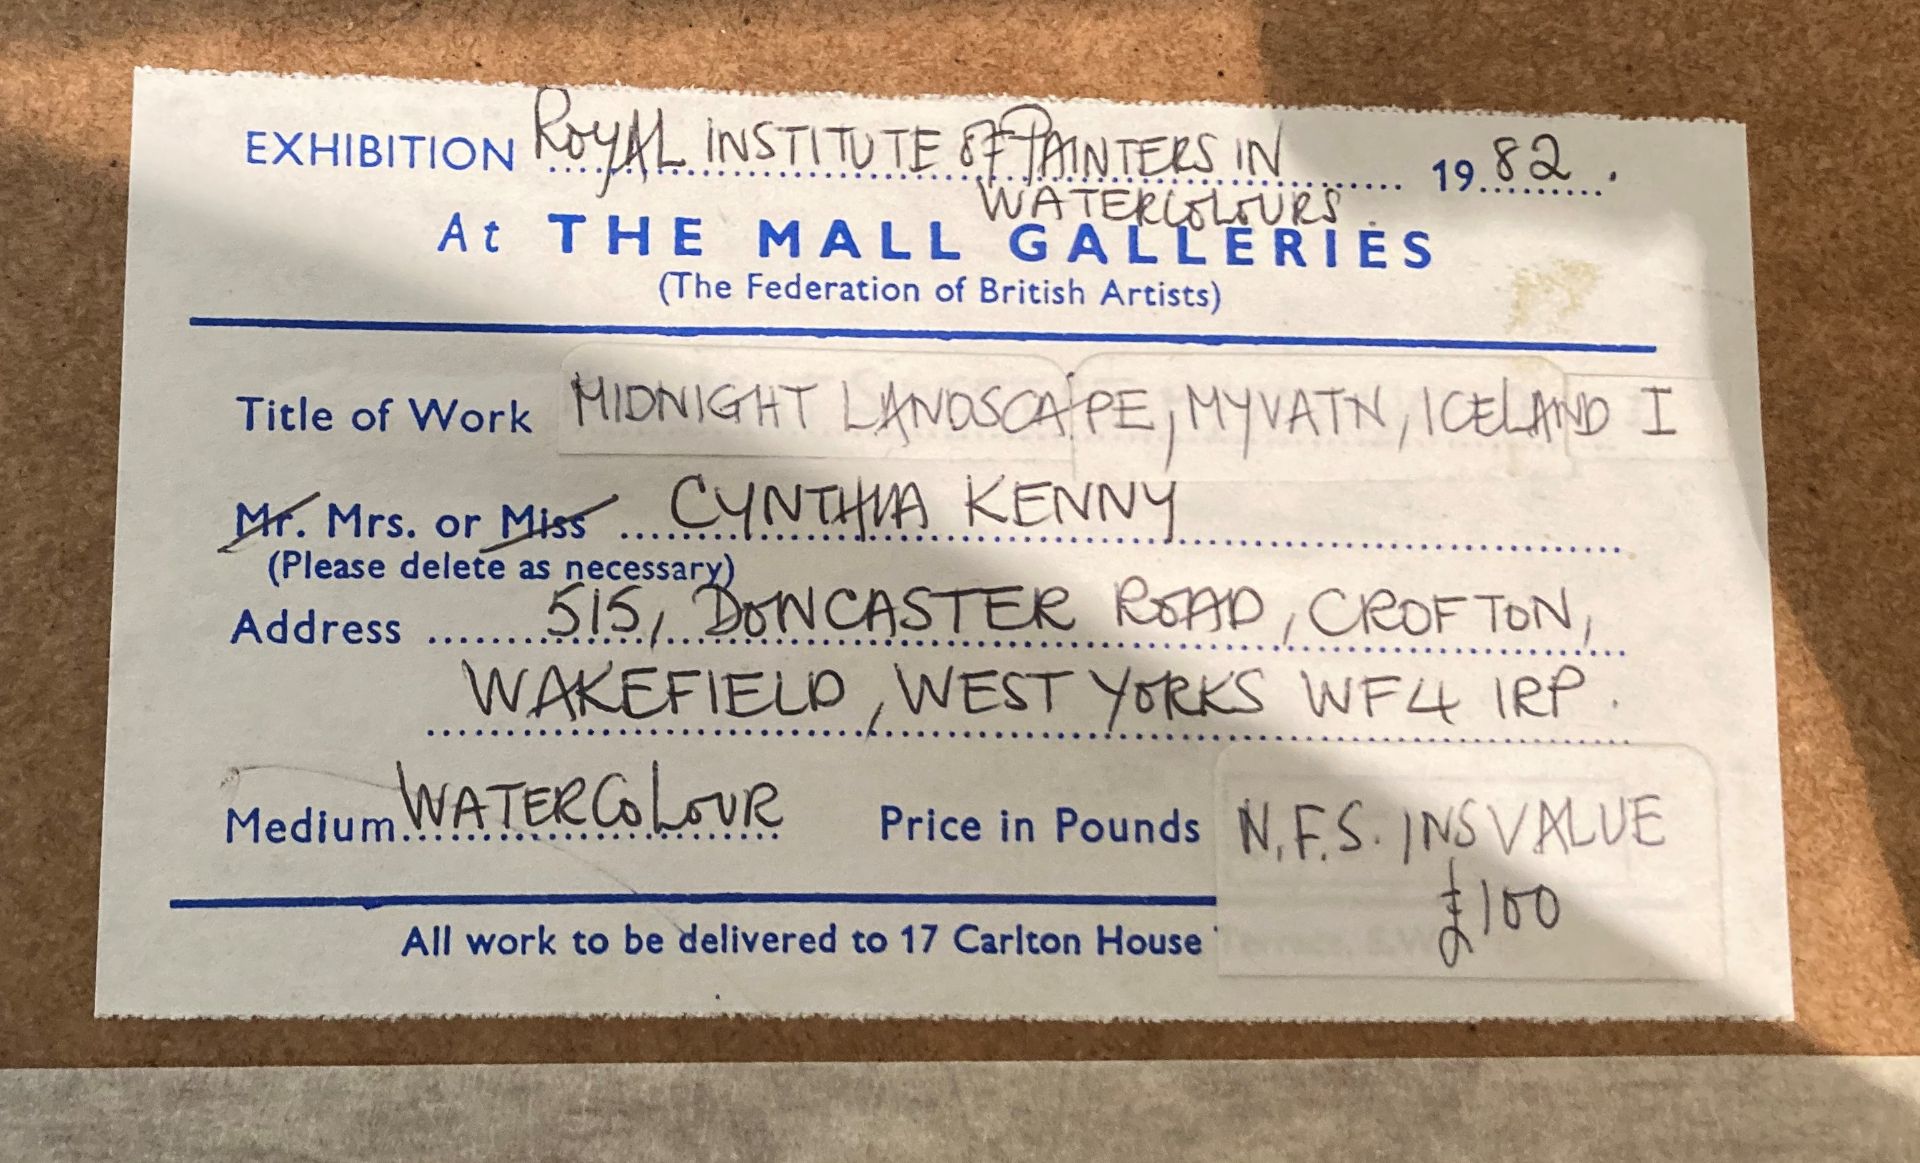 EXHIBITION ROYAL INSTITUTE OF PAINTERS IN 1982.
WATERCOLOURS
At THE MALL GALLERIES
(The Federation of British Artists)
Title of Work MIDNIGHT LANDSCAPE, MYVATN, ICELAND I
Mr. Mrs. or Miss CYNTHIA KENNY
(Please delete as necessary)
Address 515, DONCASTER ROAD, CROFTON,
WAKEFIELD, WEST YORKS WF4 1RP.
Medium WATERCOLOUR Price in Pounds N.F.S. INS VALUE
£100
All work to be delivered to 17 Carlton House